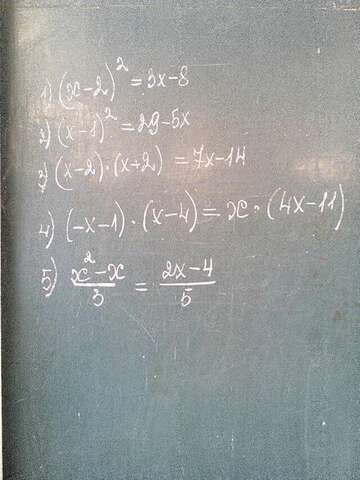 1) (x-2)² = 3x-8
2) (x-1)² = 29-5x
3) (x-2)·(x+2) = 7x-14
4) (-x-1)·(x-4) = x·(4x-11)
5) \frac{x²-x}{3} = \frac{2x-4}{5}